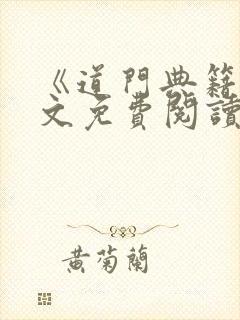 《道門典籍
文免費閱讀
黄菊蘭